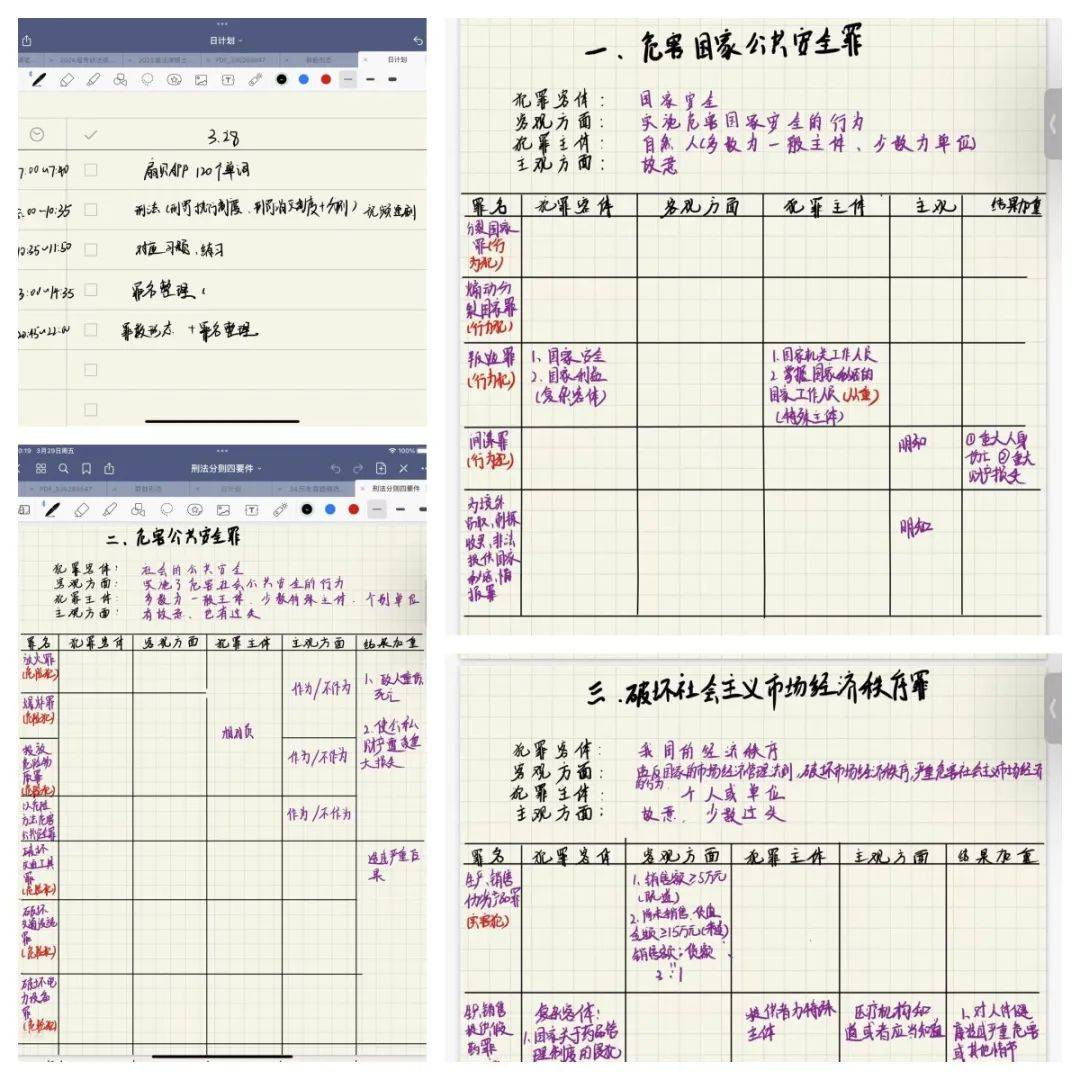 日计划
日计划
3.28
7:00~7:40
扇贝APP 120个单词
00-10:35
刑法(刑罚执行制度、刑罚消灭制度+分则)视频透刷
35~11:50
对应习题、练习
3:00~14:35
罪名整理
20:45~22:00
罪数形态 + 罪名整理
一、危害国家公共安全罪
犯罪客体: 国家安全
客观方面: 实施危害国家安全的行为
犯罪主体: 自然人(多数为一般主体、少数为单位)
主观方面: 故意
罪名 犯罪客体 客观方面 犯罪主体 主观 结果加重
分裂国家罪(行为犯)
煽动分裂国家罪(行为犯)
叛逃罪(行为犯)
1、国家安全
2、国家利益
(复杂客体)
1.国家机关工作人员
2.掌握国家秘密的
国家工作人员(从重)
(特殊主体)
间谍罪
(行为犯)
明知
①重大人身
伤亡②重大
财产损失
为境外
窃取,刺探
收买,非法
提供国家
秘密,情
报罪
明知
0:19 3月29日周五
100%
刑法分则四要件
PDF_339289847
日计划
刑法分则四要件
二、危害公共安全罪
犯罪客体: 社会的公共安全
客观方面: 实施了危害社会公共安全的行为
犯罪主体: 多数为一般主体、少数特殊主体、个别单位
主观方面: 有故意、也有过失
罪名 犯罪客体 客观方面 犯罪主体 主观方面 结果加重
放火罪
(危险犯)
作为/不作为
1、致人重伤
死亡
爆炸罪
(危险犯)
2.使公私
财产遭受重
大损失
投放
危险物
质罪
(危险犯)
作为/不作为
以危险
方法危害
公共安全罪
作为/不作为
破坏
交通工具
罪
(危险犯)
造成严重后
果
破坏
交通设施
罪
(危险犯)
破坏电
力设备
罪
(危险犯)
三、破坏社会主义市场经济秩序罪
犯罪客体: 我国的经济秩序
客观方面: 违反国家的市场经济管理法则,破坏市场经济秩序,严重危害社会主义市场经济
的行为
犯罪主体: 个人或单位
主观方面: 故意、少数过失
罪名 犯罪客体 客观方面 犯罪主体 主观方面 结果加重
生产、销售
伪劣产品罪
(实害犯)
1、销售额≥5万元
(既遂)
2.尚未销售、货值
金额≥15万元(未遂)
销售额:货额
3:1
生产、销售
提供假
药罪
复杂客体:
1.国家关于药品管
理制度的侵犯
提供者为特殊
主体
医疗机构知
道或者应当知道
1、对人体健
康造成严重危害
或其他情节